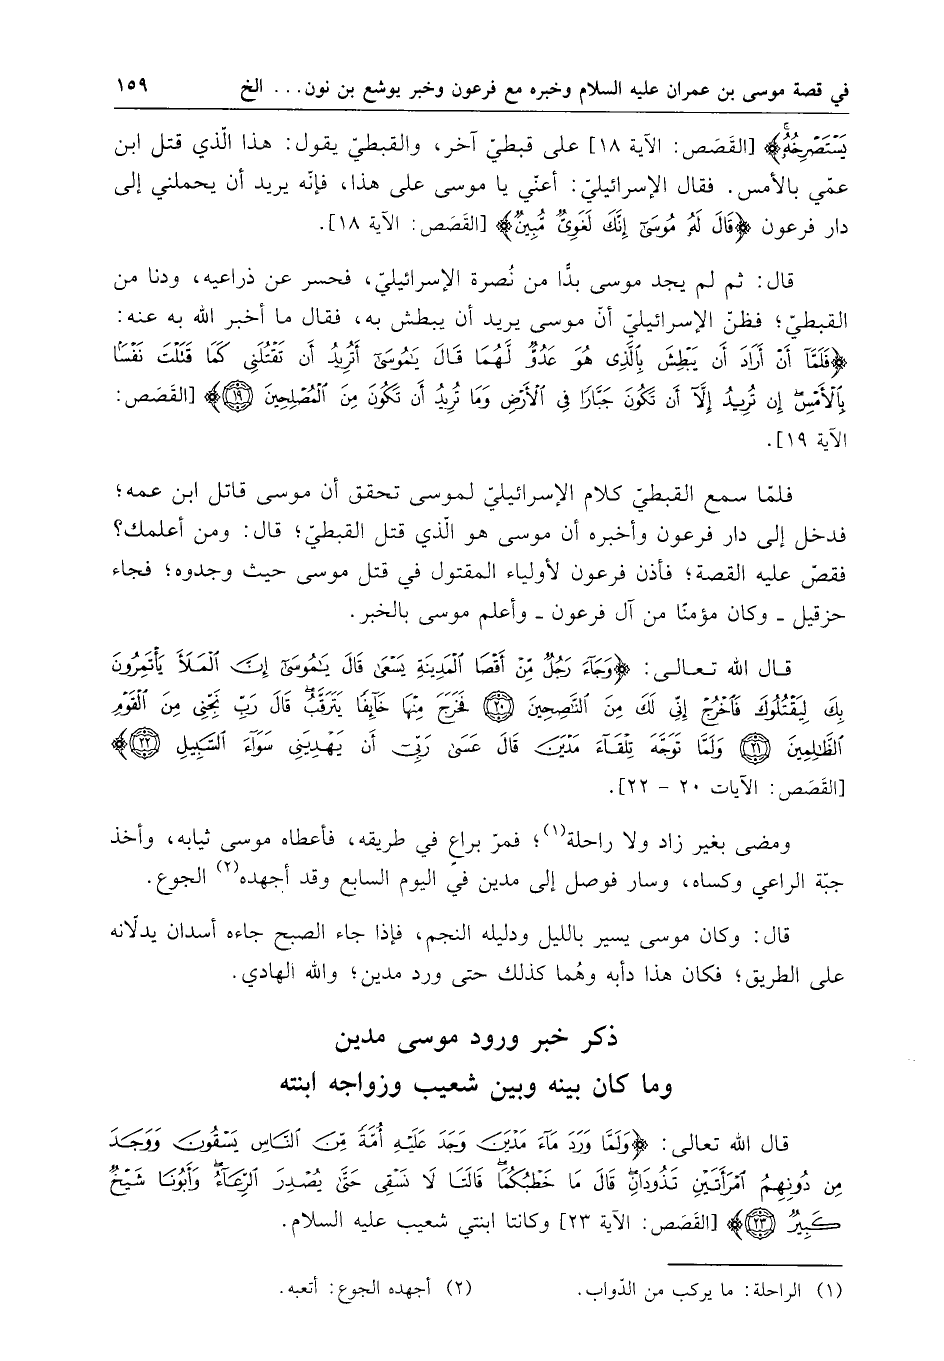 في قصة موسى بن عمران عليه السلام وخبره مع فرعون وخبر يوشع بن نون... الخ ١٥٩
يَسْتَصْرِخُهُۥۚ﴾ [القَصَص: الآية ١٨] على قبطيّ آخر، والقبطيّ يقول: هذا الّذي قتل ابن
عمّي بالأمس. فقال الإسرائيليّ: أعنّي يا موسى على هذا، فإنّه يريد أن يحملني إلى
دار فرعون ﴿قَالَ لَهُۥ مُوسَىٰٓ إِنَّكَ لَغَوِىٌّ مُّبِينٌ﴾ [القَصَص: الآية ١٨].
قال: ثم لم يجد موسى بدًّا من نُصرة الإسرائيليّ، فحسر عن ذراعيه، ودنا من
القبطيّ؛ فظنّ الإسرائيليّ أنّ موسى يريد أن يبطش به، فقال ما أخبر الله به عنه:
﴿فَلَمَّآ أَنْ أَرَادَ أَن يَبْطِشَ بِٱلَّذِى هُوَ عَدُوٌّ لَّهُمَا قَالَ يَٰمُوسَىٰٓ أَتُرِيدُ أَن تَقْتُلَنِى كَمَا قَتَلْتَ نَفْسًۢا
بِٱلْأَمْسِۖ إِن تُرِيدُ إِلَّآ أَن تَكُونَ جَبَّارًا فِى ٱلْأَرْضِ وَمَا تُرِيدُ أَن تَكُونَ مِنَ ٱلْمُصْلِحِينَ ١٩﴾ [القَصَص:
الآية ١٩].
فلمّا سمع القبطيّ كلام الإسرائيليّ لموسى تحقق أن موسى قاتل ابن عمه؛
فدخل إلى دار فرعون وأخبره أن موسى هو الّذي قتل القبطيّ؛ قال: ومن أعلمك؟
فقصّ عليه القصة؛ فأذن فرعون لأولياء المقتول في قتل موسى حيث وجدوه؛ فجاء
حزقيل ـ وكان مؤمنًا من آل فرعون ـ وأعلم موسى بالخبر.
قال الله تعالى: ﴿وَجَآءَ رَجُلٌ مِّنْ أَقْصَا ٱلْمَدِينَةِ يَسْعَىٰ قَالَ يَٰمُوسَىٰٓ إِنَّ ٱلْمَلَأَ يَأْتَمِرُونَ
بِكَ لِيَقْتُلُوكَ فَٱخْرُجْ إِنِّى لَكَ مِنَ ٱلنَّٰصِحِينَ ٢٠ فَخَرَجَ مِنْهَا خَآئِفًا يَتَرَقَّبُۖ قَالَ رَبِّ نَجِّنِى مِنَ ٱلْقَوْمِ
ٱلظَّٰلِمِينَ ٢١ وَلَمَّا تَوَجَّهَ تِلْقَآءَ مَدْيَنَ قَالَ عَسَىٰ رَبِّىٓ أَن يَهْدِيَنِى سَوَآءَ ٱلسَّبِيلِ ٢٢﴾
[القَصَص: الآيات ٢٠ - ٢٢].
ومضى بغير زاد ولا راحلة(١)؛ فمرّ براعٍ في طريقه، فأعطاه موسى ثيابه، وأخذ
جبّة الراعي وكساه، وسار فوصل إلى مدين في اليوم السابع وقد أجهده(٢) الجوع.
قال: وكان موسى يسير بالليل ودليله النجم، فإذا جاء الصبح جاءه أسدان يدلّانه
على الطريق؛ فكان هذا دأبه وهُما كذلك حتى ورد مدين؛ والله الهادي.
ذكر خبر ورود موسى مدين
وما كان بينه وبين شعيب وزواجه ابنته
قال الله تعالى: ﴿وَلَمَّا وَرَدَ مَآءَ مَدْيَنَ وَجَدَ عَلَيْهِ أُمَّةً مِّنَ ٱلنَّاسِ يَسْقُونَ وَوَجَدَ
مِن دُونِهِمُ ٱمْرَأَتَيْنِ تَذُودَانِۖ قَالَ مَا خَطْبُكُمَاۖ قَالَتَا لَا نَسْقِى حَتَّىٰ يُصْدِرَ ٱلرِّعَآءُۖ وَأَبُونَا شَيْخٌ
كَبِيرٌ ٢٣﴾ [القَصَص: الآية ٢٣] وكانتا ابنتي شعيب عليه السلام.
(١) الراحلة: ما يركب من الدّواب. (٢) أجهده الجوع: أتعبه.